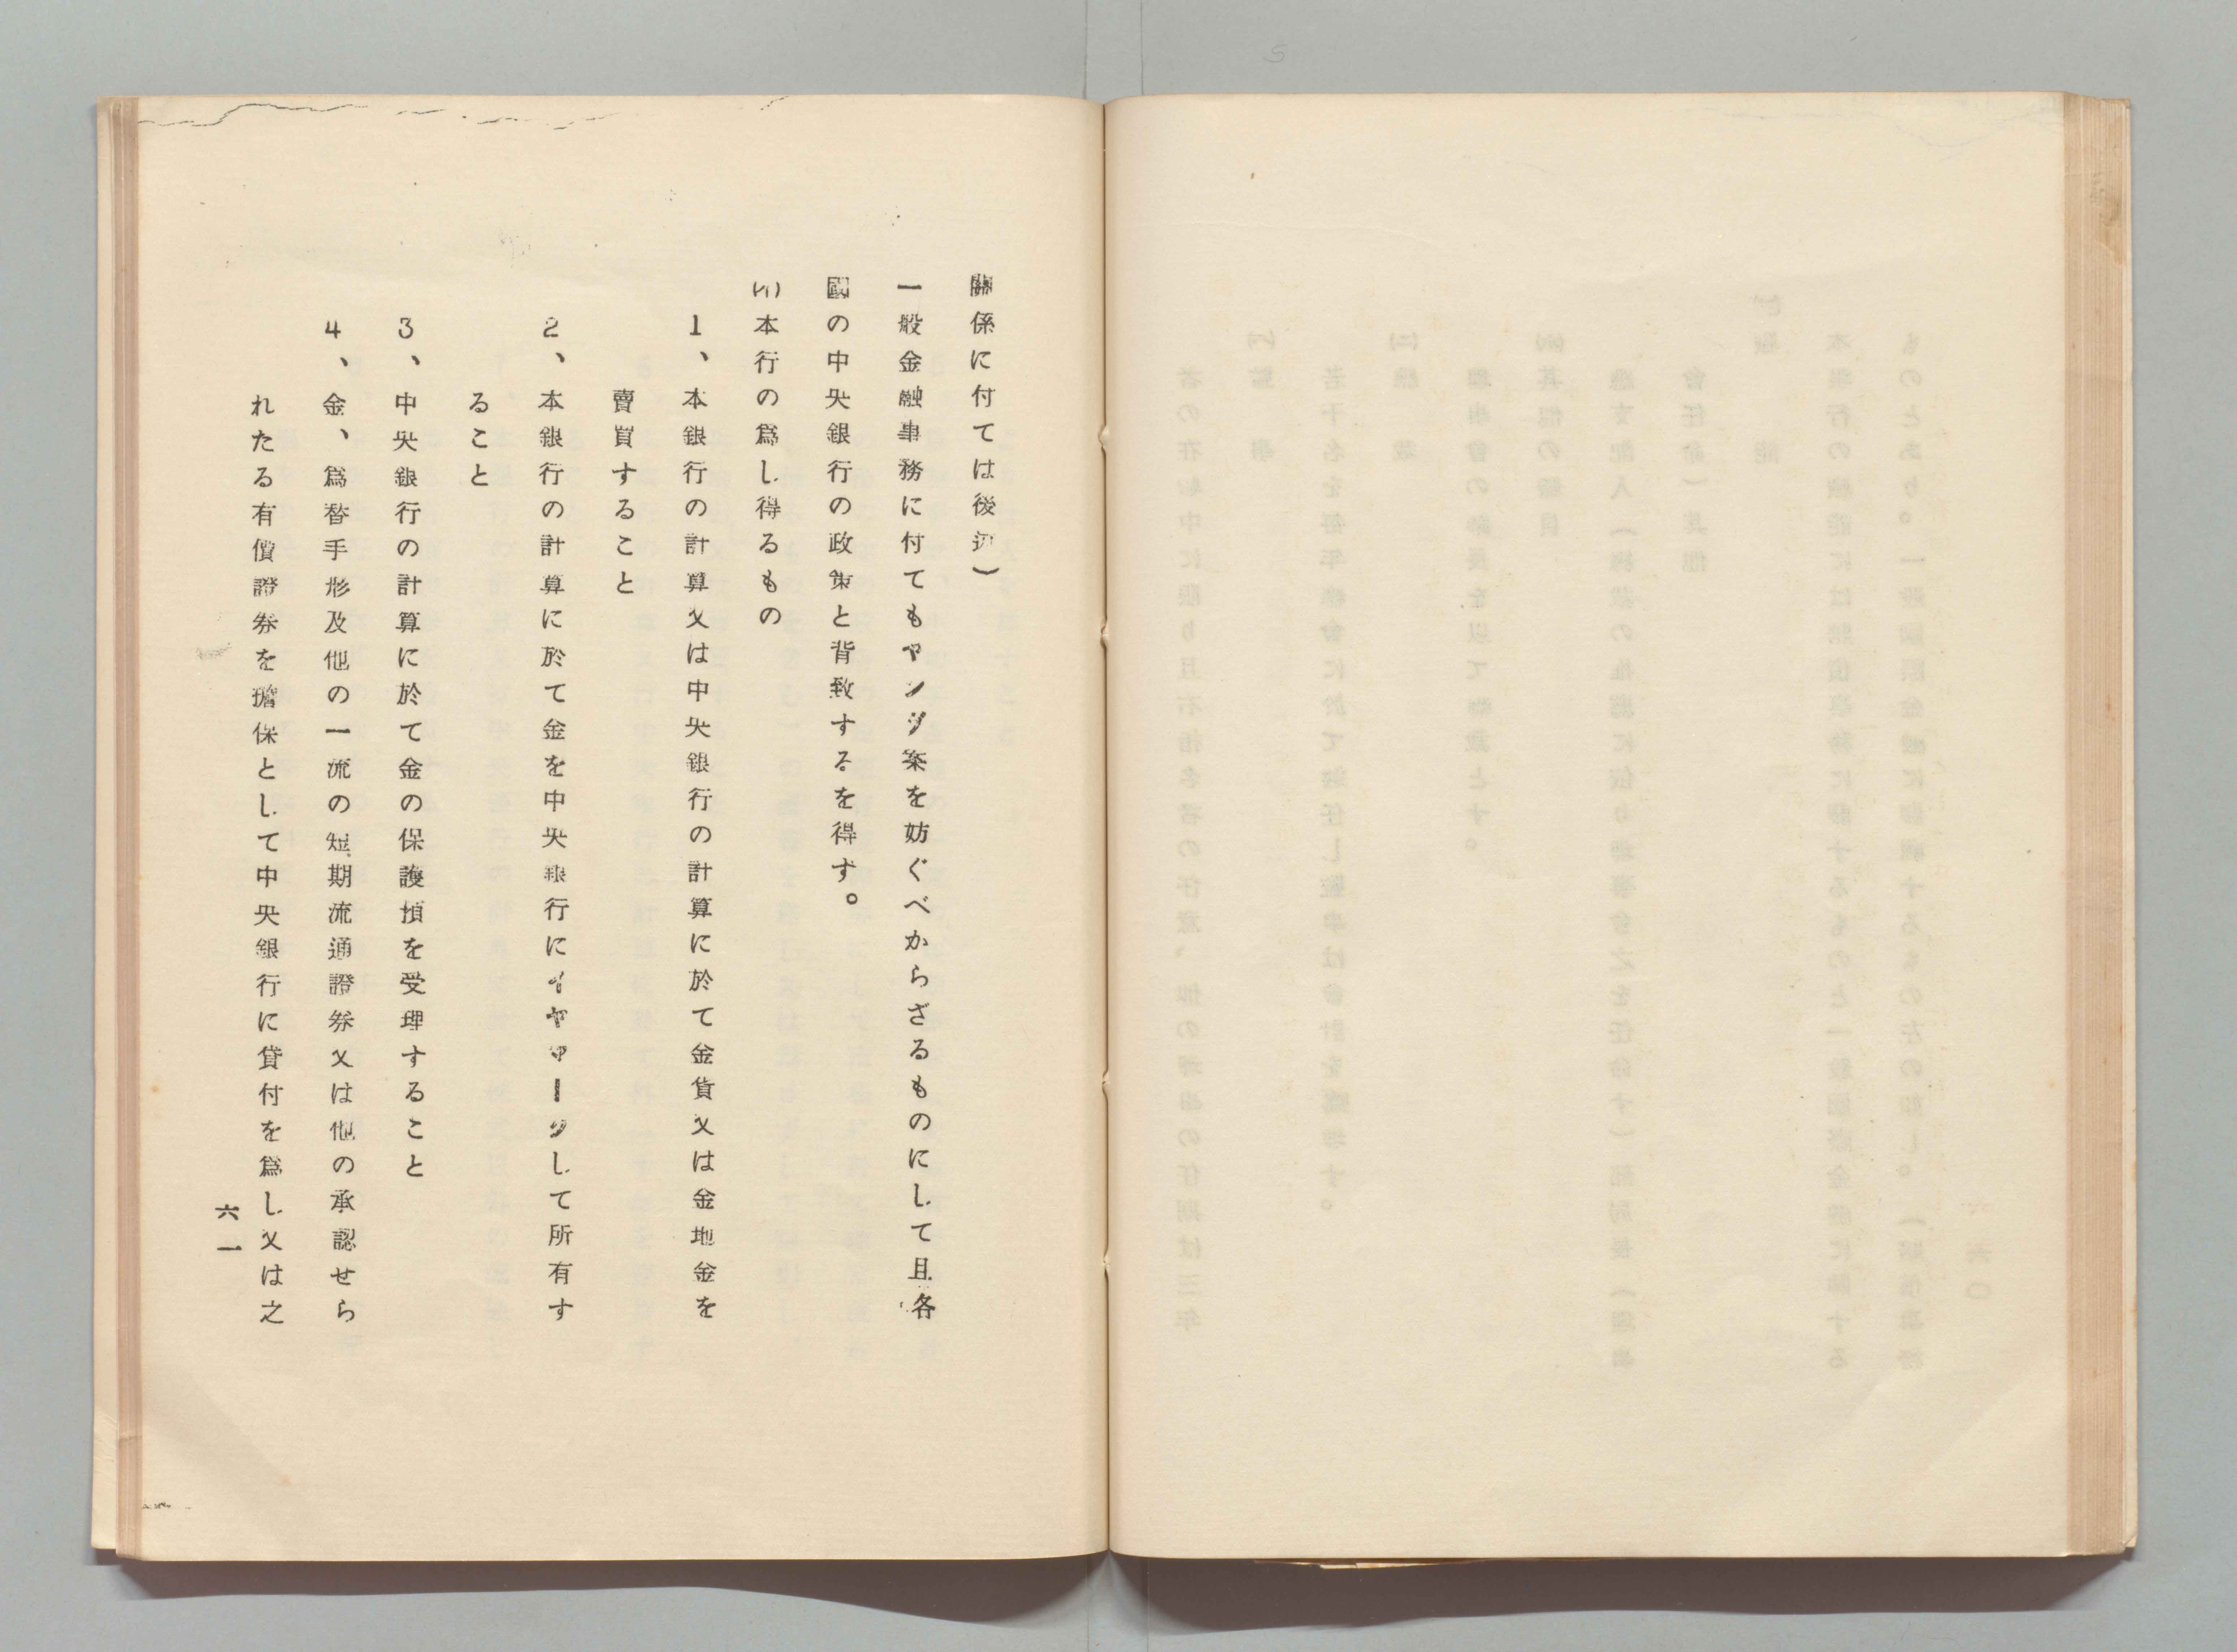 關係に付ては後述)
一般金融事務に付てもヤング案を妨ぐべからざるものにして且各
國の中央銀行の政策と背致するを得ず。
(イ)本行の爲し得るもの
1、本銀行の計算又は中央銀行の計算に於て金貨又は金地金を
賣買すること
2、本銀行の計算に於て金を中央銀行にイヤマークして所有す
ること
3、中央銀行の計算に於て金の保護預を受理すること
4、金、爲替手形及他の一流の短期流通證券又は他の承認せら
れたる有價證券を擔保として中央銀行に貸付を爲し又は之
六一